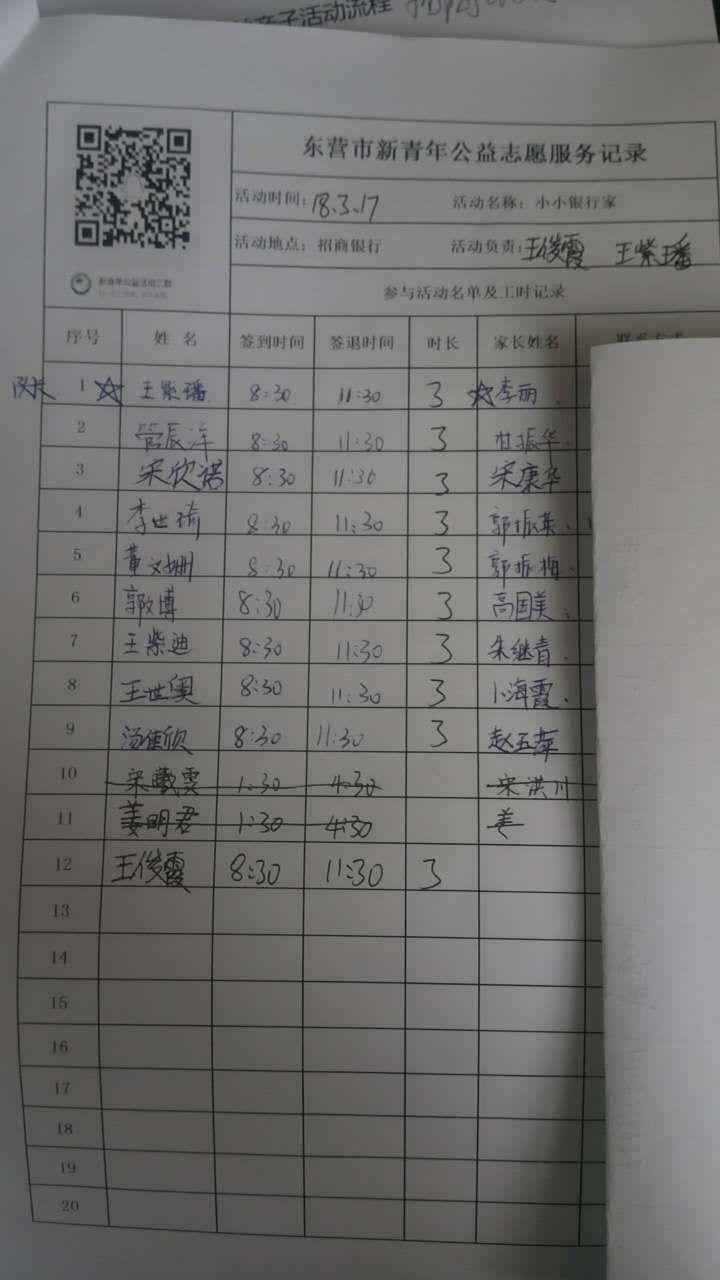 亲子活动流程
东营市新青年公益志愿服务记录
活动时间: 18.3.17 活动名称: 小小银行家
活动地点: 招商银行 活动负责: 王俊霞 王紫璠
新青年公益活动二群
参与活动名单及工时记录
序号 姓 名 签到时间 签退时间 时长 家长姓名
队长 1 ☆ 王紫璠 8:30 11:30 3 ☆李丽
2 管辰洋 8:30 11:30 3 甘振华.
3 宋欣诺 8:30 11:30 3 宋康华
4 李世琦 8:30 11:30 3 郭振英.
5 黄文姗 8:30 11:30 3 郭振梅.
6 郭文博 8:30 11:30 3 高国美.
7 王紫迪 8:30 11:30 3 朱继青.
8 王世奥 8:30 11:30 3 卜海霞.
9 汤佳欣 8:30 11:30 3 赵玉萍
10 宋曦雯 1:30 4:30 宋洪川
11 姜明君 1:30 4:30 姜
12 王俊霞 8:30 11:30 3
13
14
15
16
17
18
19
20